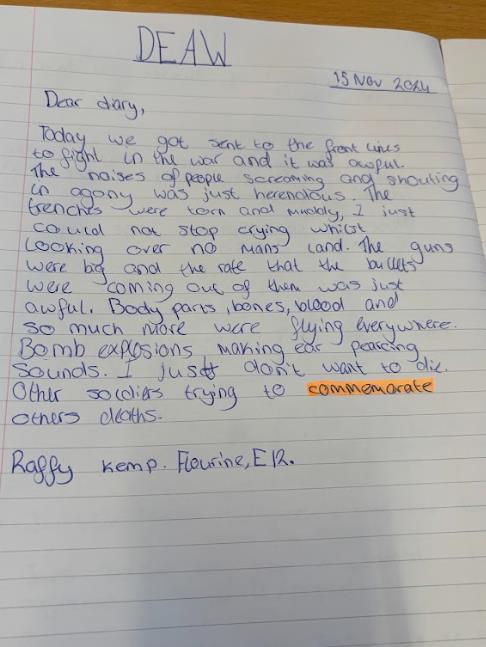 DEAW
15 Nov 2024
Dear diary,
Today we got sent to the front lines
to fight in the war and it was awful.
The noises of people screaming and shouting
in agony was just herendous. The
trenches were torn and muddy, I just
could not stop crying whilst
looking over no mans land. The guns
were big and the rate that the bullets
were coming out of them was just
awful. Body parts, bones, blood and
so much more were flying everywhere.
Bomb explosions making ear pearcing
sounds. I just don't want to die.
Other soldiers trying to commemarate
others deaths.
Raffy Kemp. Flourine, E12.